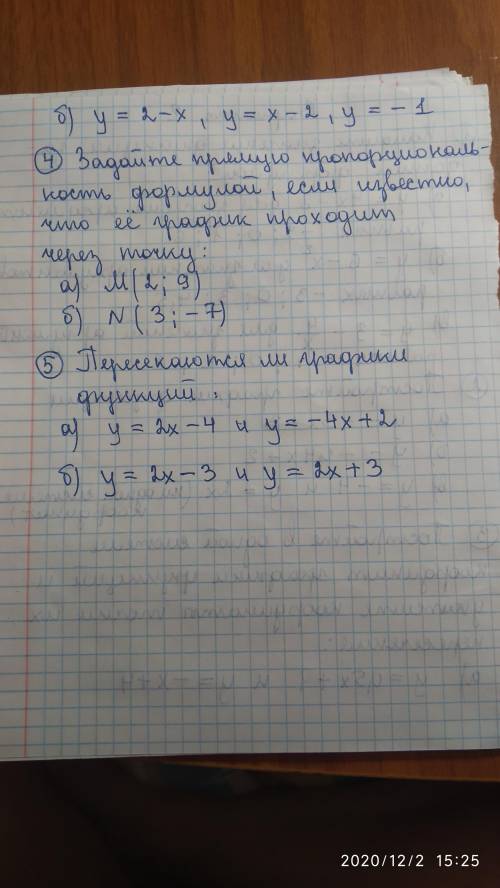 б) y = 2-x, y = x-2, y = -1
④ Задайте прямую пропорциональ-
ность формулой, если известно,
что её график проходит
через точку:
а) M(2; 9)
б) N(3; -7)
⑤ Пересекаются ли графики
функций:
а) y = 2x-4 и y = -4x+2
б) y = 2x-3 и y = 2x+3
2020/12/2 15:25